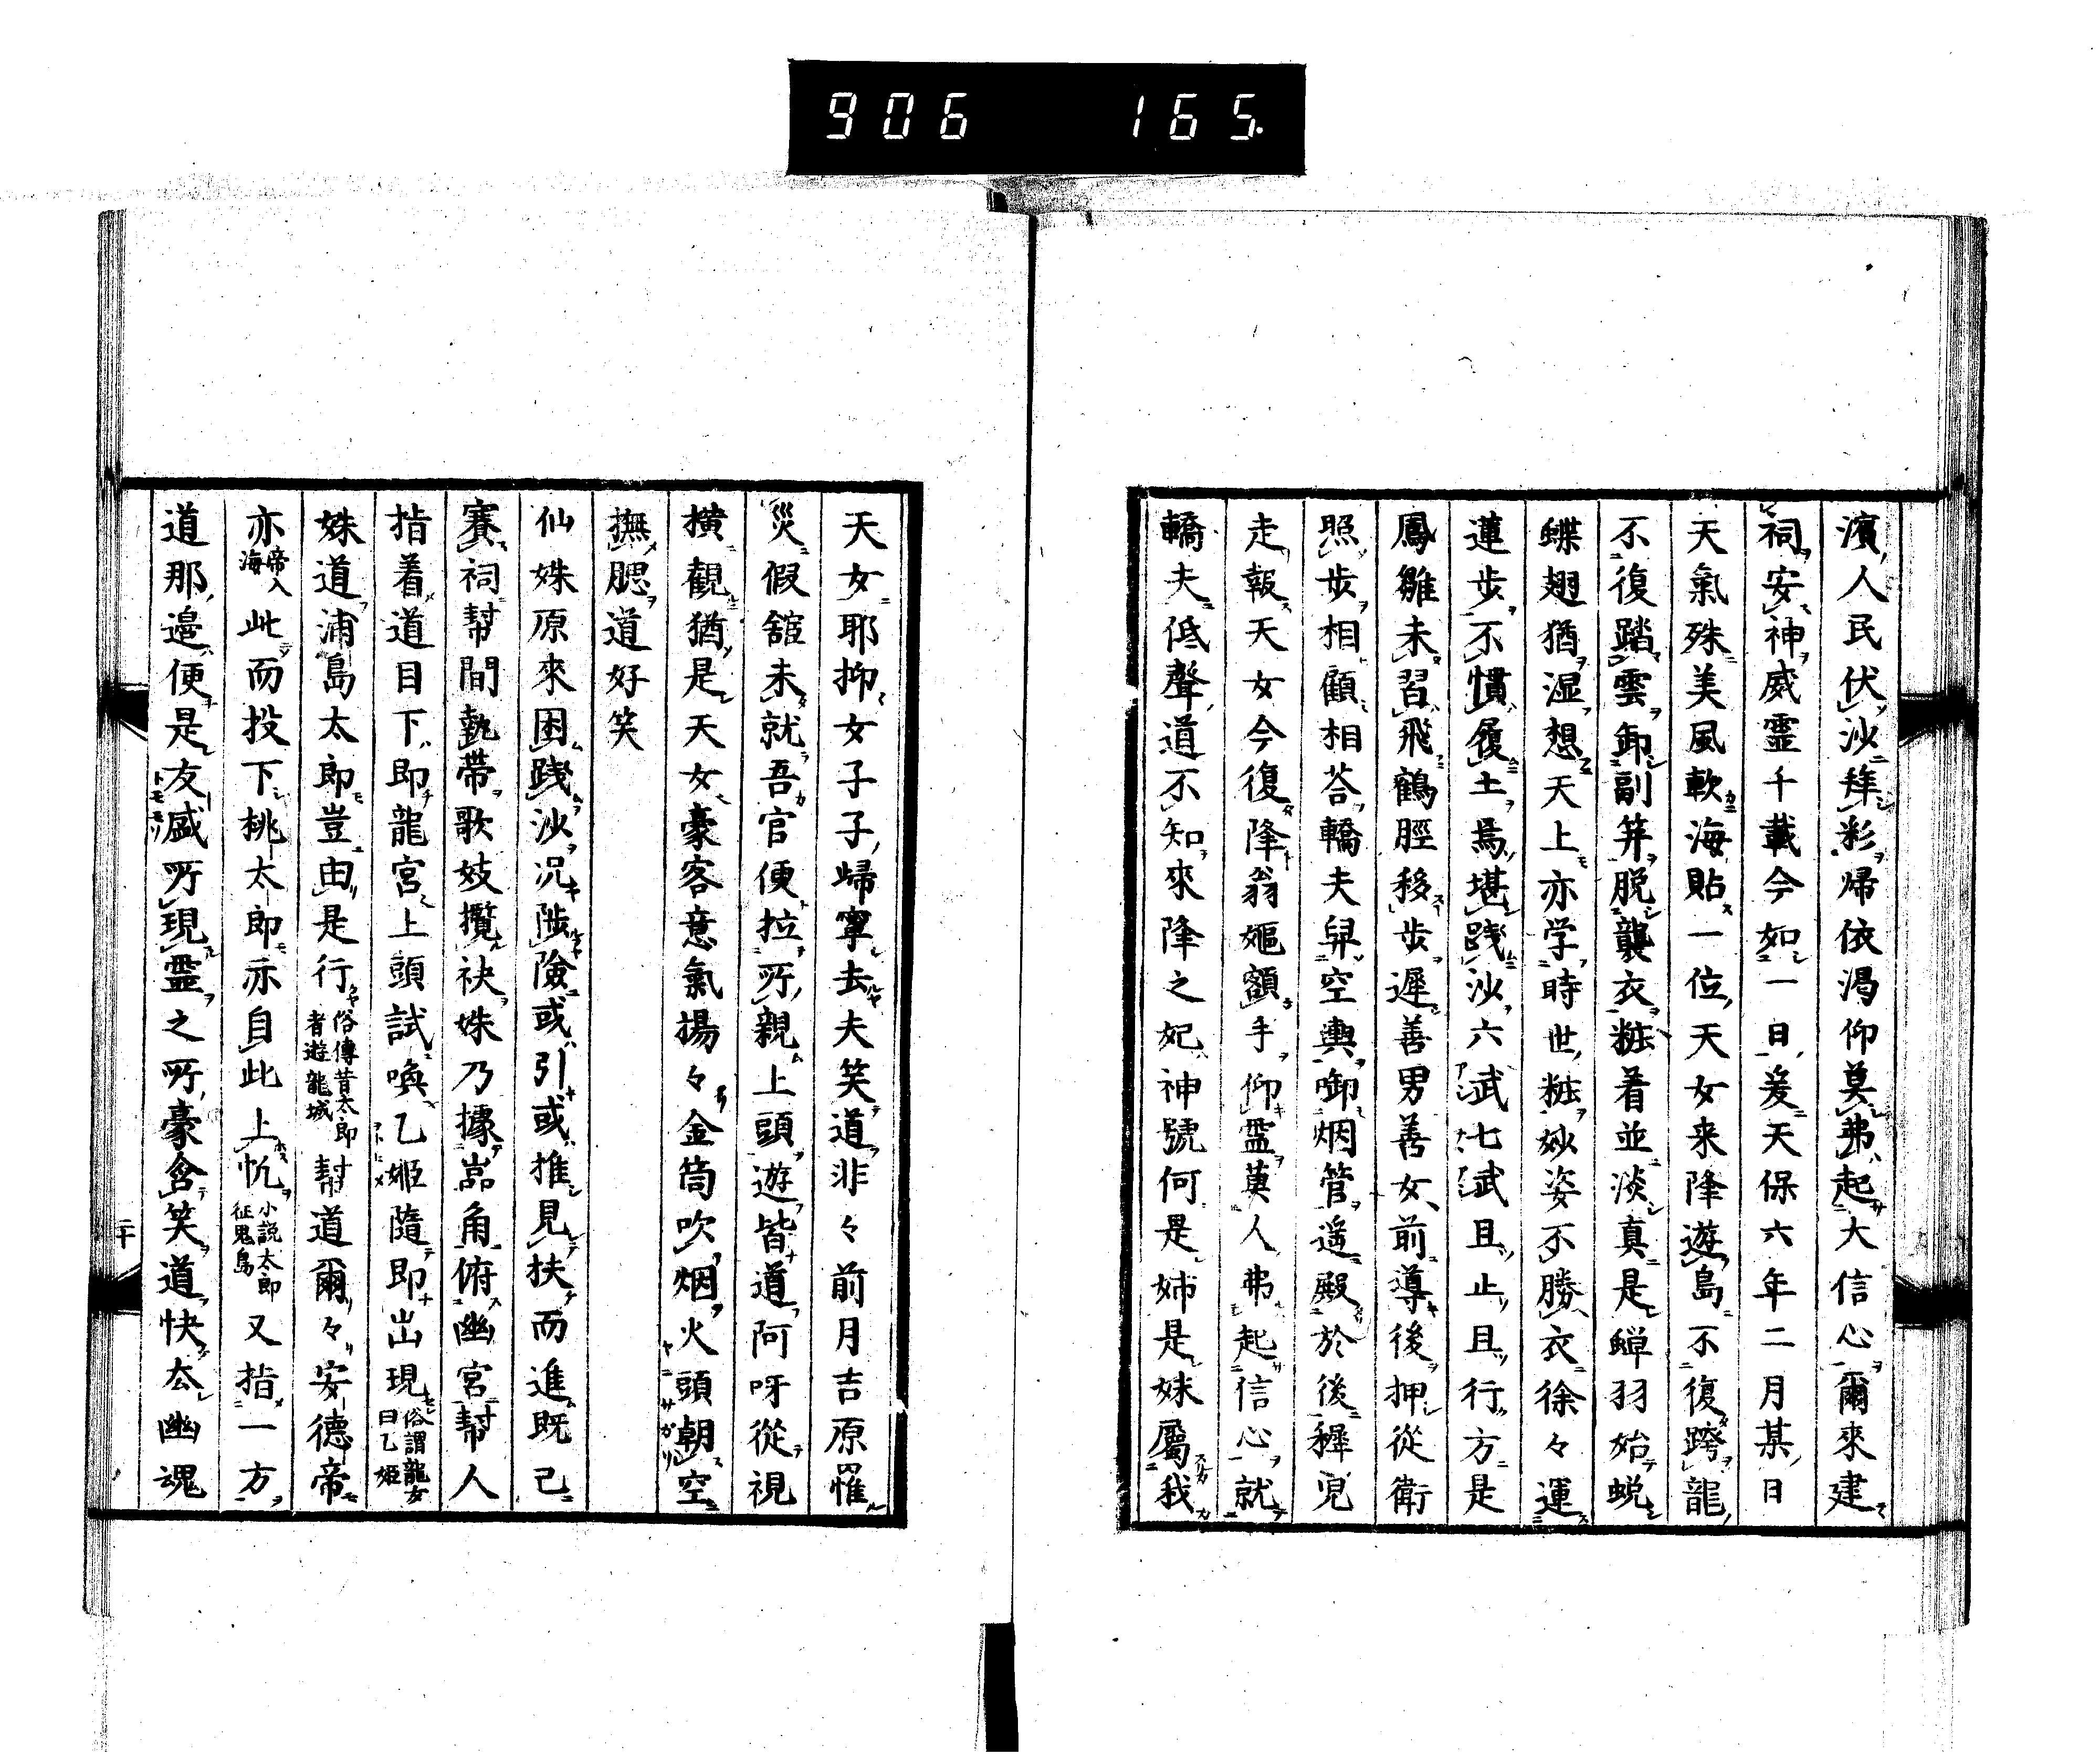 906 165.
濱人民伏沙拜彩帰依渇仰莫弗起大信心爾來建
祠安神威霊千載今如一日爰天保六年二月某日
天氣殊美風軟海貼一位天女来降遊島不復跨龍
不復踏雲卸副笄脱襲衣粧着並淡真是蟬羽始蛻
蝶翅猶湿想天上亦学時世粧妙姿不勝衣徐々運
蓮歩不慣履土焉堪践沙六武七武且止且行方是
鳳雛未習飛鶴脛移歩遲善男善女前導後押從衛
照歩相顧相荅轎夫舁空輿啣烟管遥殿於後穉児
走報天女今復降翁嫗額手仰霊莫人弗起信心就
轎夫低聲道不知來降之妃神號何是姉是妹屬我
天女耶抑女子子歸寧去夫笑道非々前月吉原罹
災假舘未就吾官便拉所親上頭遊皆道阿呀從視
横觀猶是天女豪客意氣揚々金筒吹烟火頭朝空
撫腮道好笑
仙姝原來困踐沙况陟險或引或推見扶而進既已
賽祠幇間執帶歌妓攬袂姝乃據嵓角俯幽宮幇人
指着道目下即龍宮上頭試喚乙姬隨即出現俗謂龍女曰乙姬
姝道浦島太郎豈由是行俗傳昔太郎者遊龍城幇道爾々安德帝
亦帝入海此而投下桃太郎亦自此上忨小説太郎征鬼島又指一方
道那邉便是友盛所現霊之所豪含笑道快厺幽魂
二十